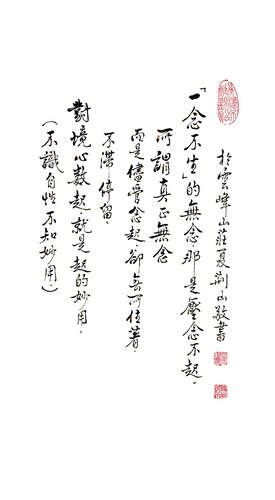 於雲峰山莊夏荊山敬書
「一念不生」的無念，那是壓念不起。
所謂真正無念
而是儘管念起卻無所住著。
不滯停留。
對境心數起，就是起的妙用。
（不識自性不知妙用。）